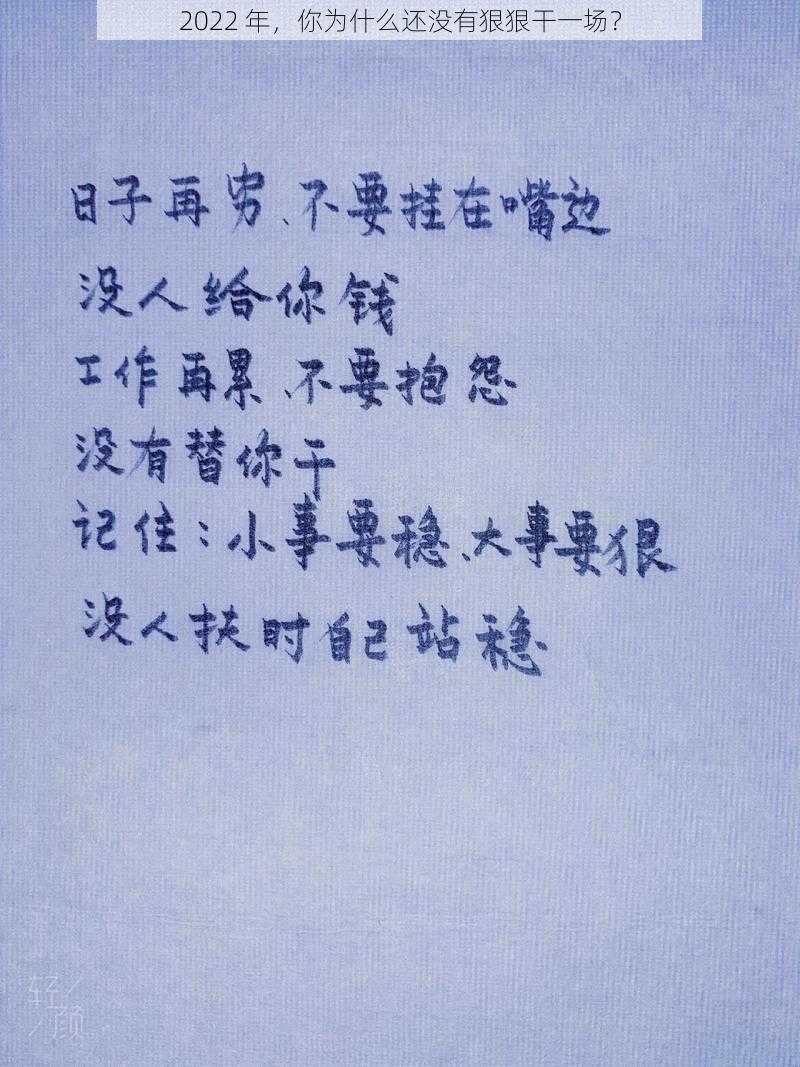 2022 年，你为什么还没有狠狠干一场？
日子再穷、不要挂在嘴边
没人给你钱
工作再累、不要抱怨
没有替你干
记住：小事要稳、大事要狠
没人扶时自己站稳
轻
颜